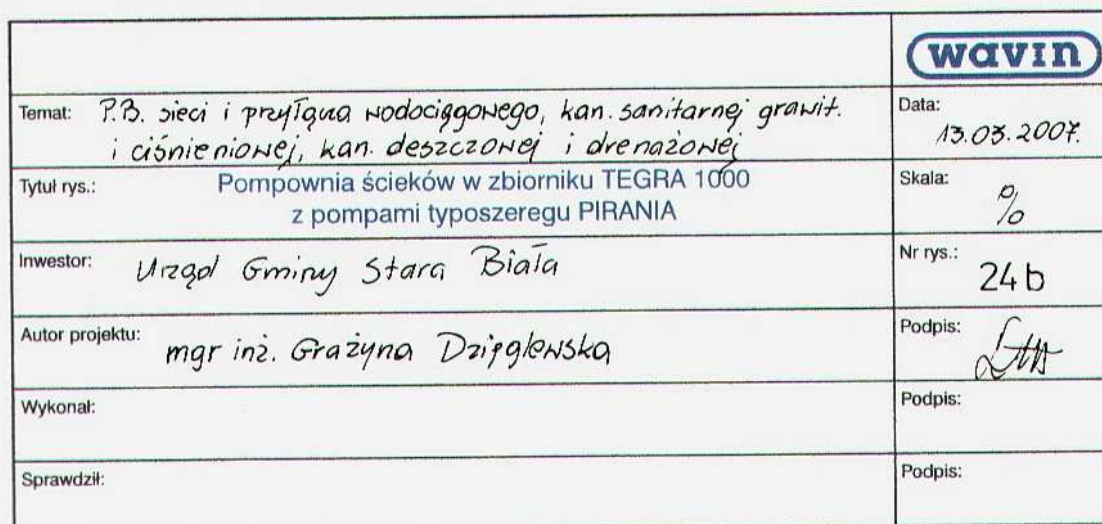 wavin
Temat: P.B. sieci i przyłącza wodociągowego, kan. sanitarnej grawit.
i ciśnieniowej, kan. deszczowej i drenażowej
Data:
13.03.2007.
Tytuł rys.: Pompownia ścieków w zbiorniku TEGRA 1000
z pompami typoszeregu PIRANIA
Skala:
%
Inwestor: Urząd Gminy Stara Biała
Nr rys.:
24b
Autor projektu: mgr inż. Grażyna Dzięglewska
Podpis:
Wykonał:
Podpis:
Sprawdził:
Podpis: